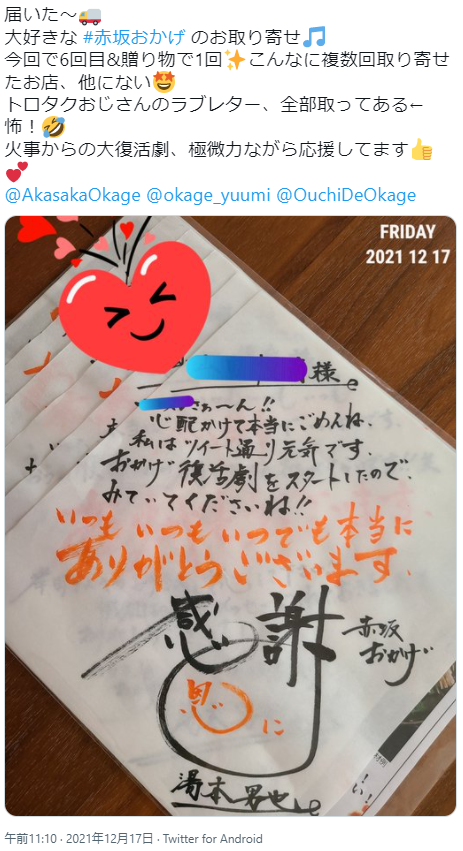 届いた〜🚚
大好きな #赤坂おかげ のお取り寄せ🎵
今回で6回目&贈り物で1回✨こんなに複数回取り寄せ
たお店、他にない🤩
トロタクおじさんのラブレター、全部取ってある←
怖！🤣
火事からの大復活劇、極微力ながら応援してます👍
💕
@AkasakaOkage @okage_yuumi @OuchiDeOkage
FRIDAY
2021 12 17
様
さぁ〜ん!!
心配かけて本当にごめんね。
私はツイート通り元気です。
おかげ復活劇をスタートしたので、
みていてくださいね!!
いつもいつもいつでも本当に
ありがとうございます。
感謝
赤坂
おかげ
恩に
湯本男也
午前11:10 · 2021年12月17日 · Twitter for Android